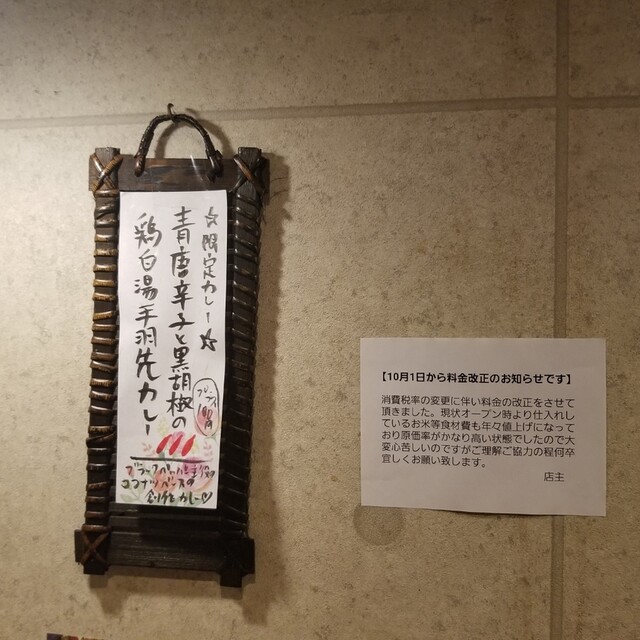 ☆限定カレー☆
青唐辛子と黒胡椒の
鶏白湯手羽先カレー
ココナッツベースの
創作カレー♡
【10月1日から料金改正のお知らせです】
消費税率の変更に伴い料金の改正をさせて
頂きました。現状オープン時より仕入れし
ているお米等食材費も年々値上げになって
おり原価率がかなり高い状態でしたので大
変心苦しいのですがご理解ご協力の程何卒
宜しくお願い致します。
店主